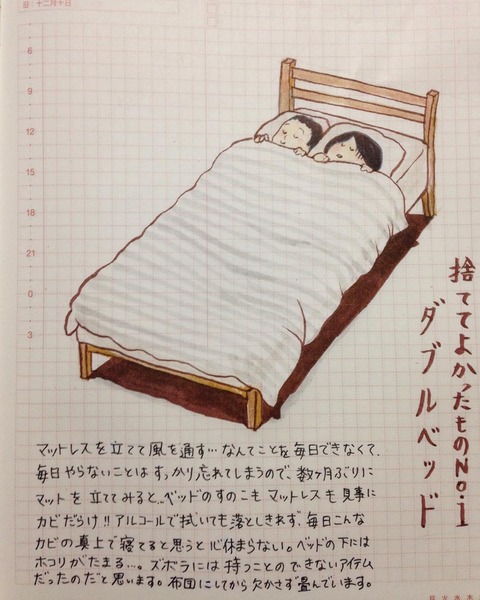 旧:十二月十日
6
9
12
15
18
21
0
3
捨ててよかったものNo.1
ダブルベッド
マットレスを立てて風を通す…なんてことを毎日できなくて、
毎日やらないことはすっかり忘れてしまうので、数ヶ月ぶりに
マットを立ててみると…ベッドのすのこもマットレスも見事に
カビだらけ!!アルコールで拭いても落としきれず、毎日こんな
カビの真上で寝てると思うと心休まらない。ベッドの下には
ホコリがたまる…。ズボラには持つことのできないアイテム
だったのだと思います。布団にしてから欠かさず畳んでいます。
月 火 水 木